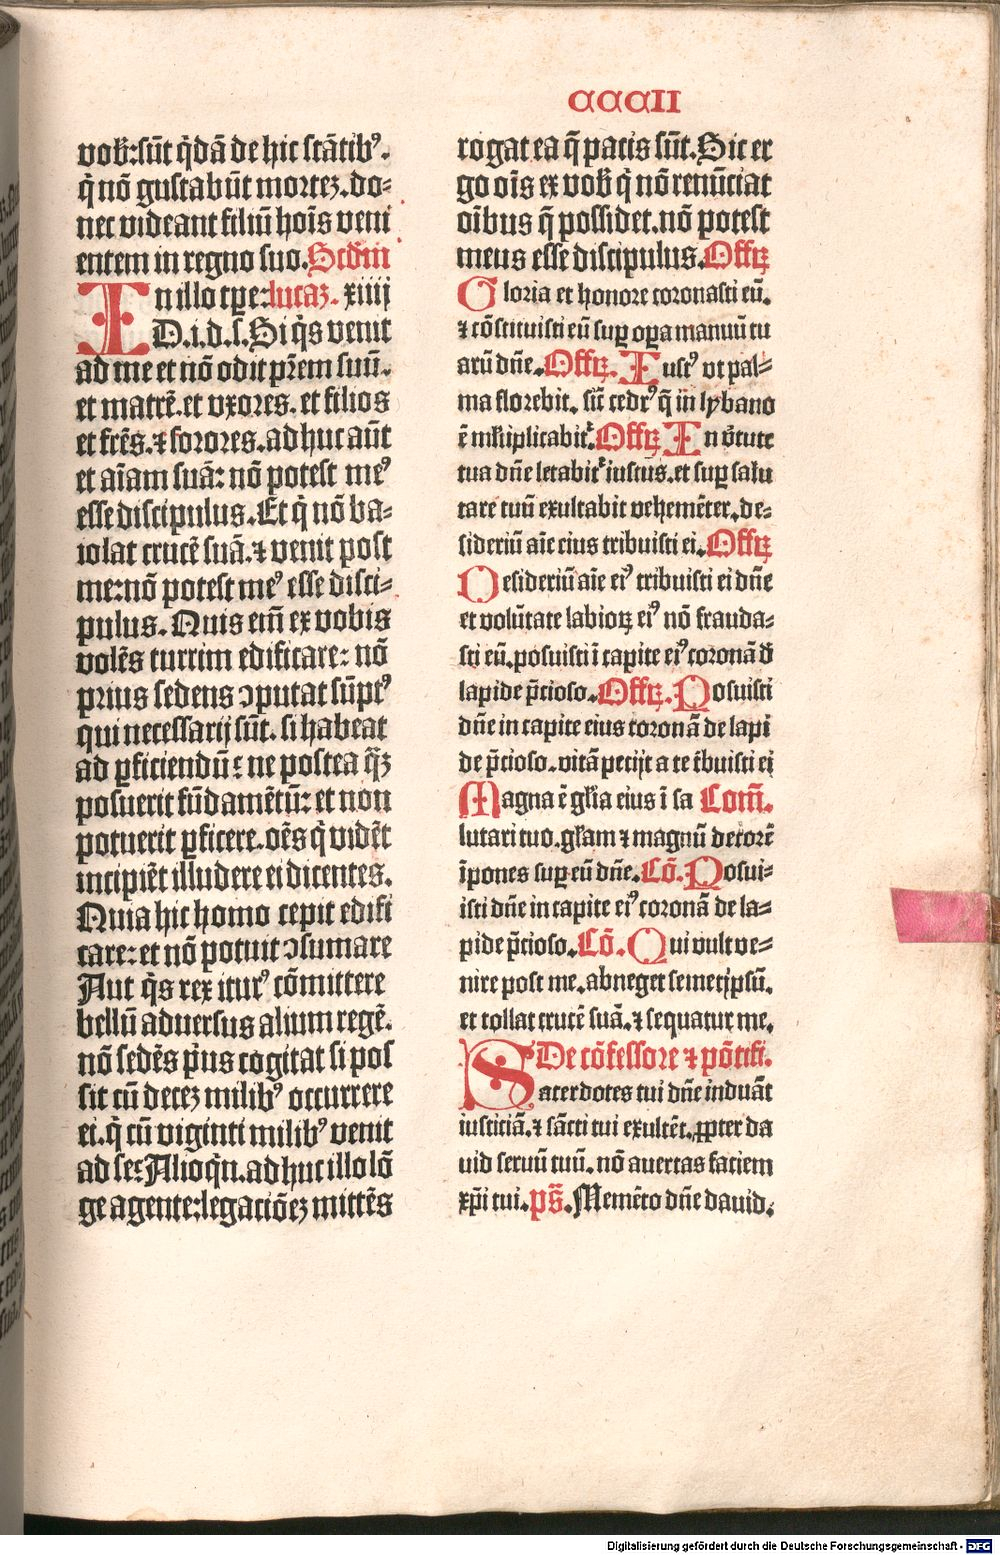 CCCII
vob̄:sūt q̄dā de hic stātib⁹.
q̄ nō gustabūt mortez.do⸗
nec videant filiū hoīs veni
entem in regno suo.Scdm̄
In illo tpe:lucaz.xiiij
D.i.d.s.Si q̄s venit
ad me et nō odit prēm suū.
et matrē.et vxores.et filios
et frēs.⁊ sorores.adhuc aūt
et aīam suā: nō potest me⁹
esse discipulus.Et q̄ nō ba⸗
iolat crucē suā.⁊ venit post
me:nō potest me⁹ esse disci⸗
pulus.Quis em̄ ex vobis
volēs turrim edificare: nō
prius sedens ꝯputat sūpt⁹
qui necessarij sūt.si habeat
ad ꝑficiendū: ne postea q̄ꝫ
posuerit fūdamētū: et non
potuerit ꝑficere.oēs q̄ vidēt
incipiēt illudere ei dicentes.
Quia hic homo cepit edifi
care:et nō potuit ꝯsumare
Aut q̄s rex itur⁹ cōmittere
bellū aduersus alium regē.
nō sedēs p̄us cogitat si pos
sit cū decez milib⁹ occurrere
ei.q̄ cū viginti milib⁹ venit
ad se:Alioq̄n.adhuc illo lō
ge agente:legaciōez mittēs
rogat ea q̄ pacis sūt.Sic er
go oīs ex vob̄ q̄ nō renūciat
oībus q̄ possidet.nō potest
meus esse discipulus.Offꝝ
Gloria et honore coronasti eū.
⁊ cōstituisti eū suꝑ oꝑa manuū tu
arū dn̄e.Offꝝ.Iust⁹ vt pal⸗
ma florebit.sic̄ cedr⁹ q̄ in lybano
ē mltiplicabit᷑.Offꝝ In v̄tute
tua dn̄e letabit᷑ iustus.et suꝑ salu
tare tuū exultabit vehemēter.de⸗
sideriū aīe eius tribuisti ei.Offꝝ
Desideriū aīe ei⁹ tribuisti ei dn̄e
et volūtate labioꝝ ei⁹ nō frauda⸗
sti eū.posuisti ī capite ei⁹ coronā đ
lapide p̄cioso.Offꝝ.Posuisti
dn̄e in capite eius coronā de lapi
de p̄cioso.vitā pecijt a te t̄buisti ei
Magna ē gl̄ia eius ī sa Com̄.
lutari tuo.gl̄am ⁊ magnū decorē
īpones suꝑ eū dn̄e.Cō.Posui⸗
isti dn̄e in capite ei⁹ coronā de la⸗
pide p̄cioso.Cō.Qui vult ve⸗
nire post me.abneget semetip̄sū.
et tollat crucē suā.⁊ sequatur me.
De cōfessore ⁊ pōtifi.
Sacerdotes tui dn̄e induāt
iusticiā.⁊ sācti tui exultēt.ꝓpter da
uid seruū tuū.nō auertas faciem
xp̄i tui.ps̄.Memēto dn̄e dauid.
Digitalisierung gefördert durch die Deutsche Forschungsgemeinschaft - DFG